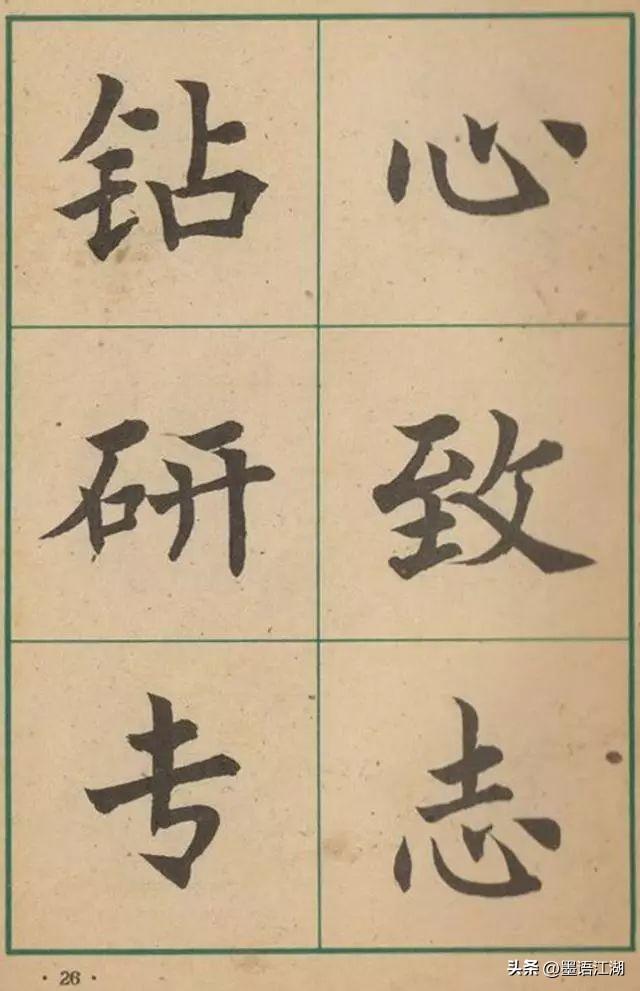 心致志
钻研专
· 26 ·
头条 @墨语江湖